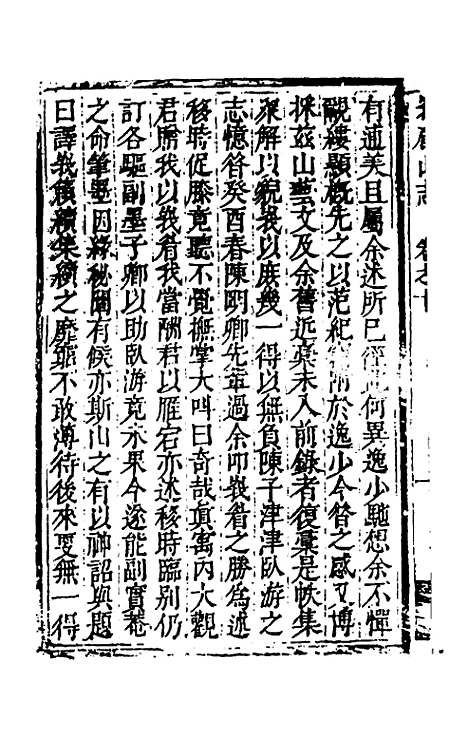 山志 卷之十
有通美且屬余述所已徑此何異逸少馳想余不憚
覶縷顯概先之以范紀附於逸少今昝之感又博
採茲山藝文及余舊近藁未入前錄者復彙是帙集
衆解以貌峩以庶幾一得以無負陳子津津臥游之
志憶昝癸酉春陳明卿先軰過余叩峩眉之勝爲述
移時促膝竟聽不覺撫掌大叫曰奇哉眞寓内大觀
君贍我以峩眉我當酬君以雁宕亦述移時臨别仍
訂各驅副墨子卿以助臥游竟未果今遂能副實菴
之命筆墨因緣秘閟有候亦斯山之有以神詔與題
曰譯峩籟續集續之靡不敢薄待後來要無一得